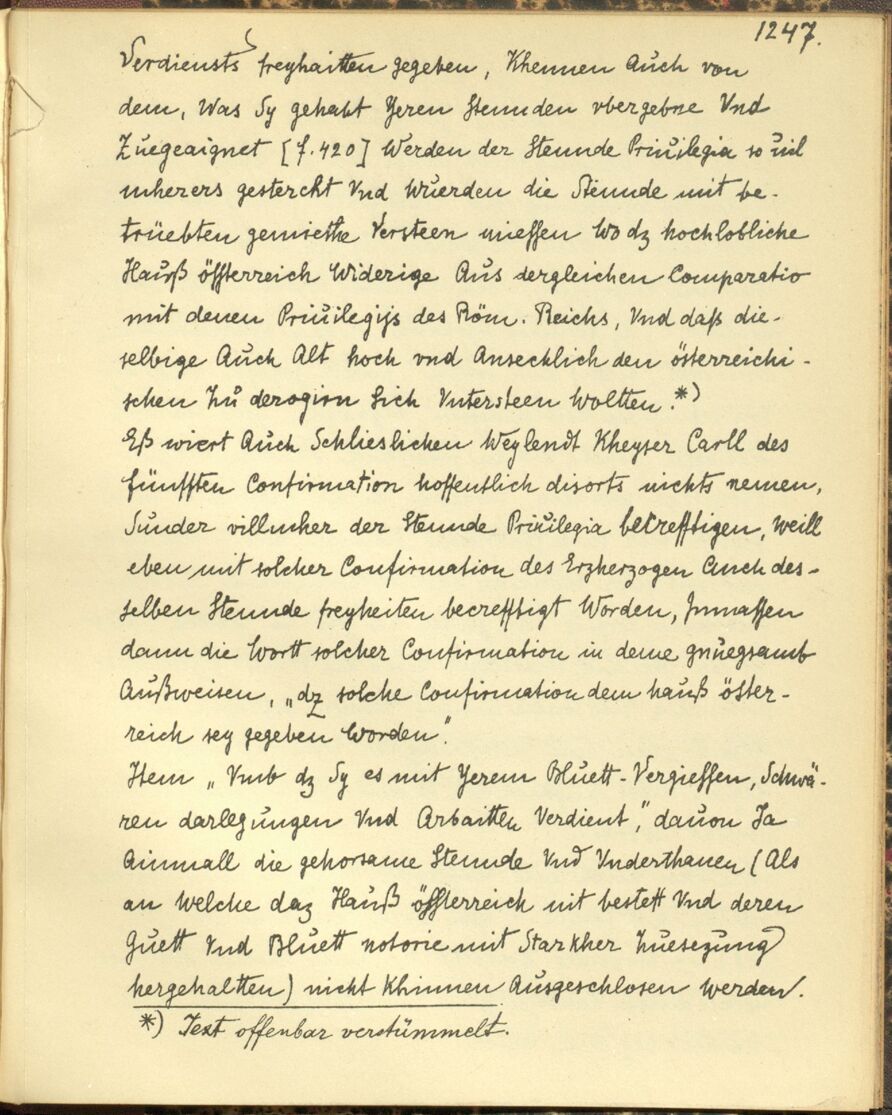 1247.
Verdiensts freyhaitten gegeben, Khennen Auch von
dem, Was Sy gehabt Yeren Stennden vbergebne Vnd
Zuegeaignet [f. 420] Werden der Stennde Priuilegia so uil
mherers gesterckt Vnd wuerden die Stennde mit be-
trüebten gemiethe Versteen miessen Wo dz hochlobliche
Hauß össterreich Widerige Aus dergleichen Comparatio
mit denen Priuilegijs des Röm. Reichs, Vnd daß die-
selbige Auch Alt hoch vnd Ansechlich den österreichi-
schen Zů derogirn Sich Vntersteen Woltten.*)
Eß wiert Auch Schlieslichen Weylendt Kheyser Carll des
fünfften Confirmation hoffentlich disorts nichts nemen,
Sunder villmher der Stennde Priuilegia becrefftigen, Weill
eben mit solcher Confirmation des Erzherzogen Auch des-
selben Stennde freyheiten becrefftigt Worden, Inmassen
dann die Wortt solcher Confirmation in deme gnuegsamb
Außweisen, „dz solche Confirmation dem hauß öster-
reich sey gegeben Worden".
Item „Vmb dz Sy es mit Yerem Bluett-Vergiessen, Schwä-
ren darlegungen Vnd Arbaitten Verdient", dauon Ja
Ainmall die gehorsame Stennde Vnd Vnderthanen (Als
an Welche daz Hauß össterreich nit bestett Vnd deren
Guett Vnd Bluett notorie mit Starkher Zuesezung
hergehaltten) nicht Khinnen Ausgeschlosen werden.
*) Text offenbar verstümmelt.